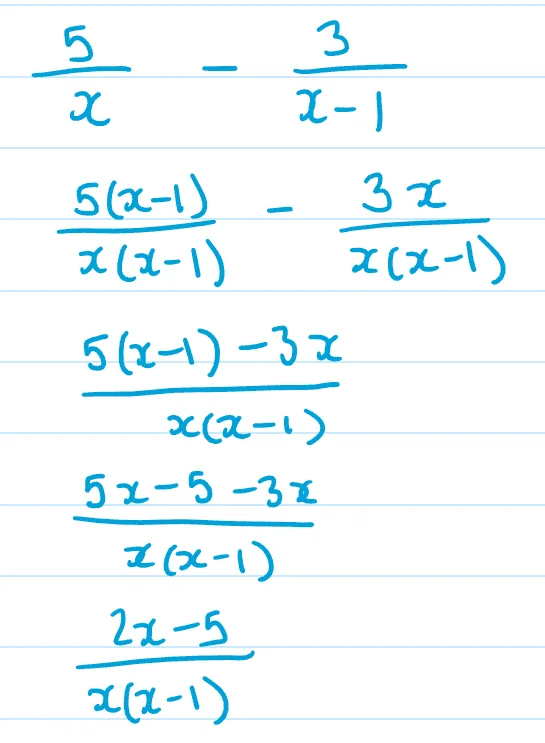 5/x - 3/(x-1)
5(x-1)/x(x-1) - 3x/x(x-1)
5(x-1) - 3x/x(x-1)
5x - 5 - 3x/x(x-1)
2x - 5/x(x-1)